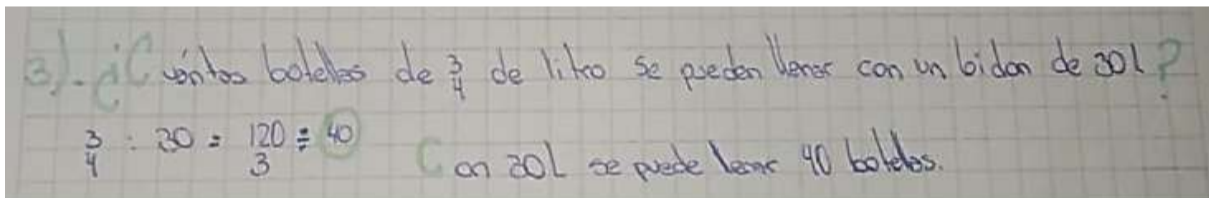 3).- ¿Cuántas botellas de 3/4 de litro se pueden llenar con un bidon de 30l?
3/4 : 30 = 120/3 = 40
Con 30L se puede llenar 40 botellas.